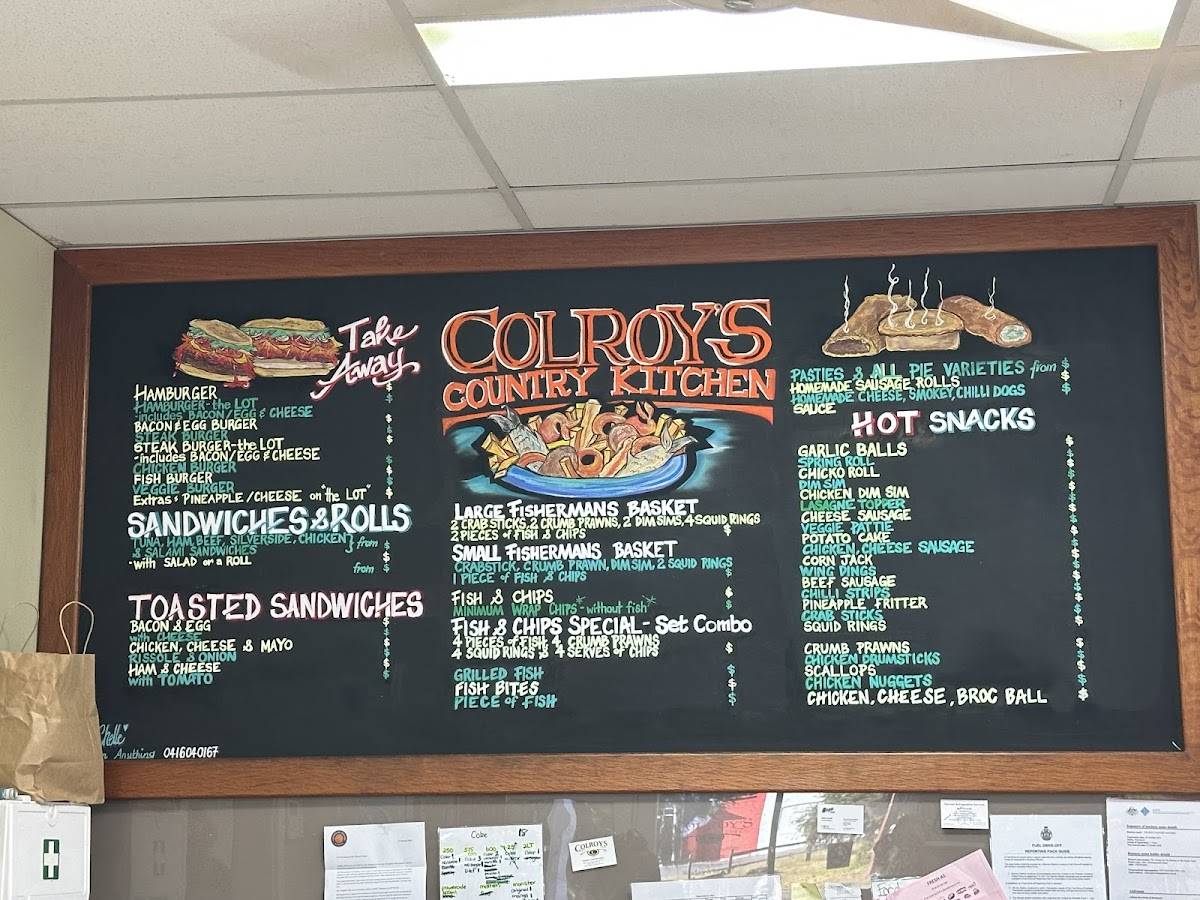 Take
Away
HAMBURGER $
HAMBURGER-the LOT $
-includes BACON/EGG & CHEESE
BACON & EGG BURGER $
STEAK BURGER $
STEAK BURGER-the LOT $
-includes BACON/EGG & CHEESE
CHICKEN BURGER $
FISH BURGER $
VEGGIE BURGER $
Extras: PINEAPPLE/CHEESE on "the LOT" $
SANDWICHES & ROLLS
TUNA, HAM, BEEF, SILVERSIDE, CHICKEN } from $
& SALAMI SANDWICHES
-with SALAD or a ROLL $
from $
TOASTED SANDWICHES
BACON & EGG $
with CHEESE $
CHICKEN, CHEESE & MAYO $
RISSOLE & ONION $
HAM & CHEESE $
with TOMATO $
Anything 0416040167
COLROY'S
COUNTRY KITCHEN
LARGE FISHERMANS BASKET
2 CRABSTICKS, 2 CRUMB PRAWNS, 2 DIM SIMS, 4 SQUID RINGS
2 PIECES of FISH & CHIPS $
SMALL FISHERMANS BASKET
CRABSTICK, CRUMB PRAWN, DIM SIM, 2 SQUID RINGS
1 PIECE of FISH & CHIPS $
FISH & CHIPS $
MINIMUM WRAP CHIPS *-without fish* $
FISH & CHIPS SPECIAL - Set Combo
4 PIECES of FISH 4 CRUMB PRAWNS
4 SQUID RINGS & 4 SERVES of CHIPS $
GRILLED FISH $
FISH BITES $
PIECE of FISH $
PASTIES & ALL PIE VARIETIES from $
HOMEMADE SAUSAGE ROLLS $
HOMEMADE CHEESE, SMOKEY, CHILLI DOGS $
SAUCE $
HOT SNACKS
GARLIC BALLS $
SPRING ROLL $
CHICKO ROLL $
DIM SIM $
CHICKEN DIM SIM $
LASAGNE TOPPER $
CHEESE SAUSAGE $
VEGGIE PATTIE $
POTATO CAKE $
CHICKEN, CHEESE SAUSAGE $
CORN JACK $
WING DINGS $
BEEF SAUSAGE $
CHILLI STRIPS $
PINEAPPLE FRITTER $
CRAB STICKS $
SQUID RINGS $
CRUMB PRAWNS $
CHICKEN DRUMSTICKS $
SCALLOPS $
CHICKEN NUGGETS $
CHICKEN, CHEESE, BROC BALL $
Coke
COLROY'S
FRESH AS
FUEL DRIVE-OFF
REPORTING PACK GUIDE